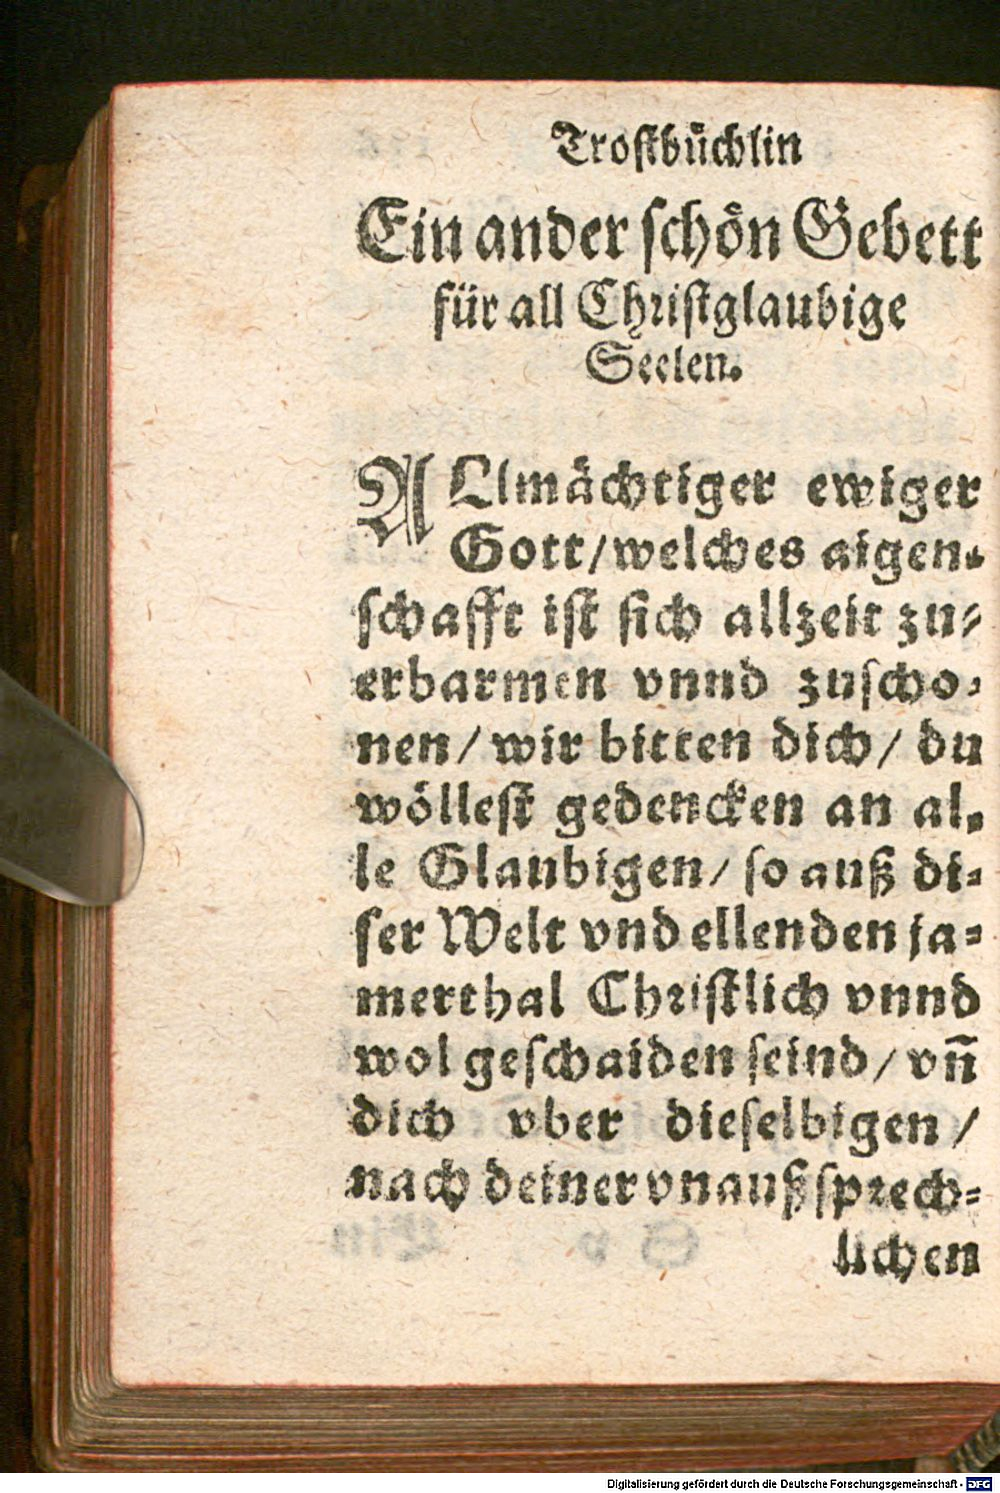 Trostbüchlin
Ein ander schön Gebett
für all Christglaubige
Seelen.
ALlmächtiger ewiger
Gott/welches aigen-
schafft ist sich allzeit zu-
erbarmen vnnd zuscho-
nen/ wir bitten dich/ du
wöllest gedencken an al-
le Glaubigen/ so auß di-
ser Welt vnd ellenden ja-
merthal Christlich vnnd
wol geschaiden seind/ vñ
dich vber dieselbigen/
nach deiner vnaußsprech-
lichen
Digitalisierung gefördert durch die Deutsche Forschungsgemeinschaft - DFG